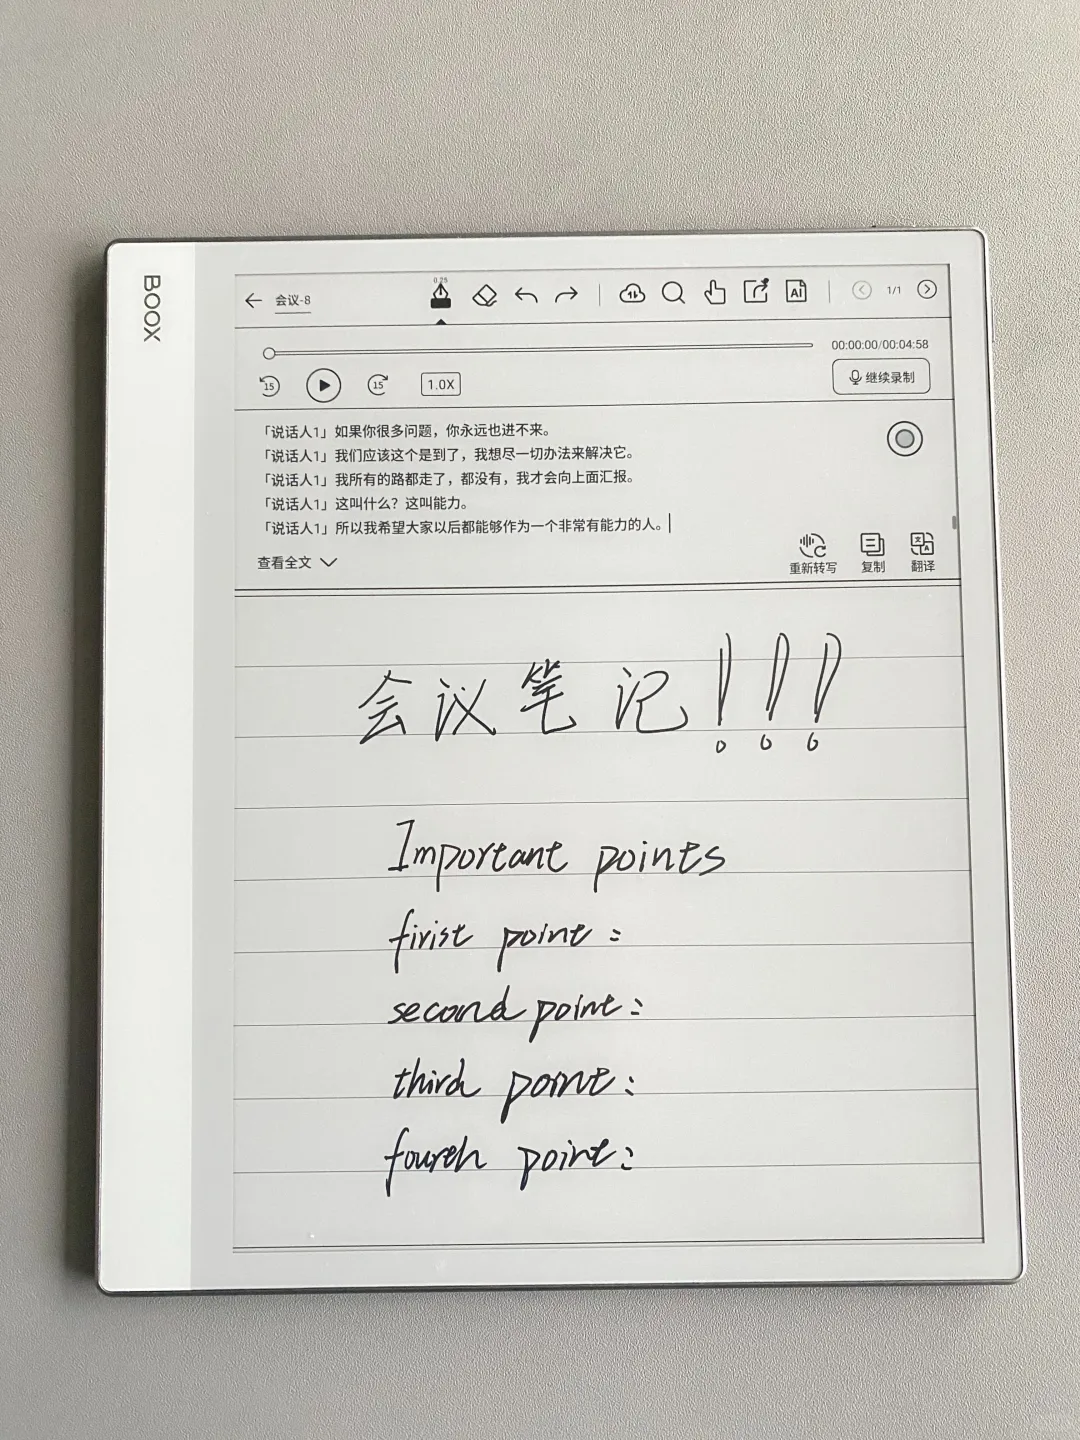 BOOX
会议-8
0.25
AI
1/1
00:00:00/00:04:58
15
15
1.0X
继续录制
「说话人1」如果你很多问题，你永远也进不来。
「说话人1」我们应该这个是到了，我想尽一切办法来解决它。
「说话人1」我所有的路都走了，都没有，我才会向上面汇报。
「说话人1」这叫什么？这叫能力。
「说话人1」所以我希望大家以后都能够作为一个非常有能力的人。
查看全文
重新转写 复制 翻译
会议笔记！！！
Important points
firist point：
second point：
third point：
fourth point：